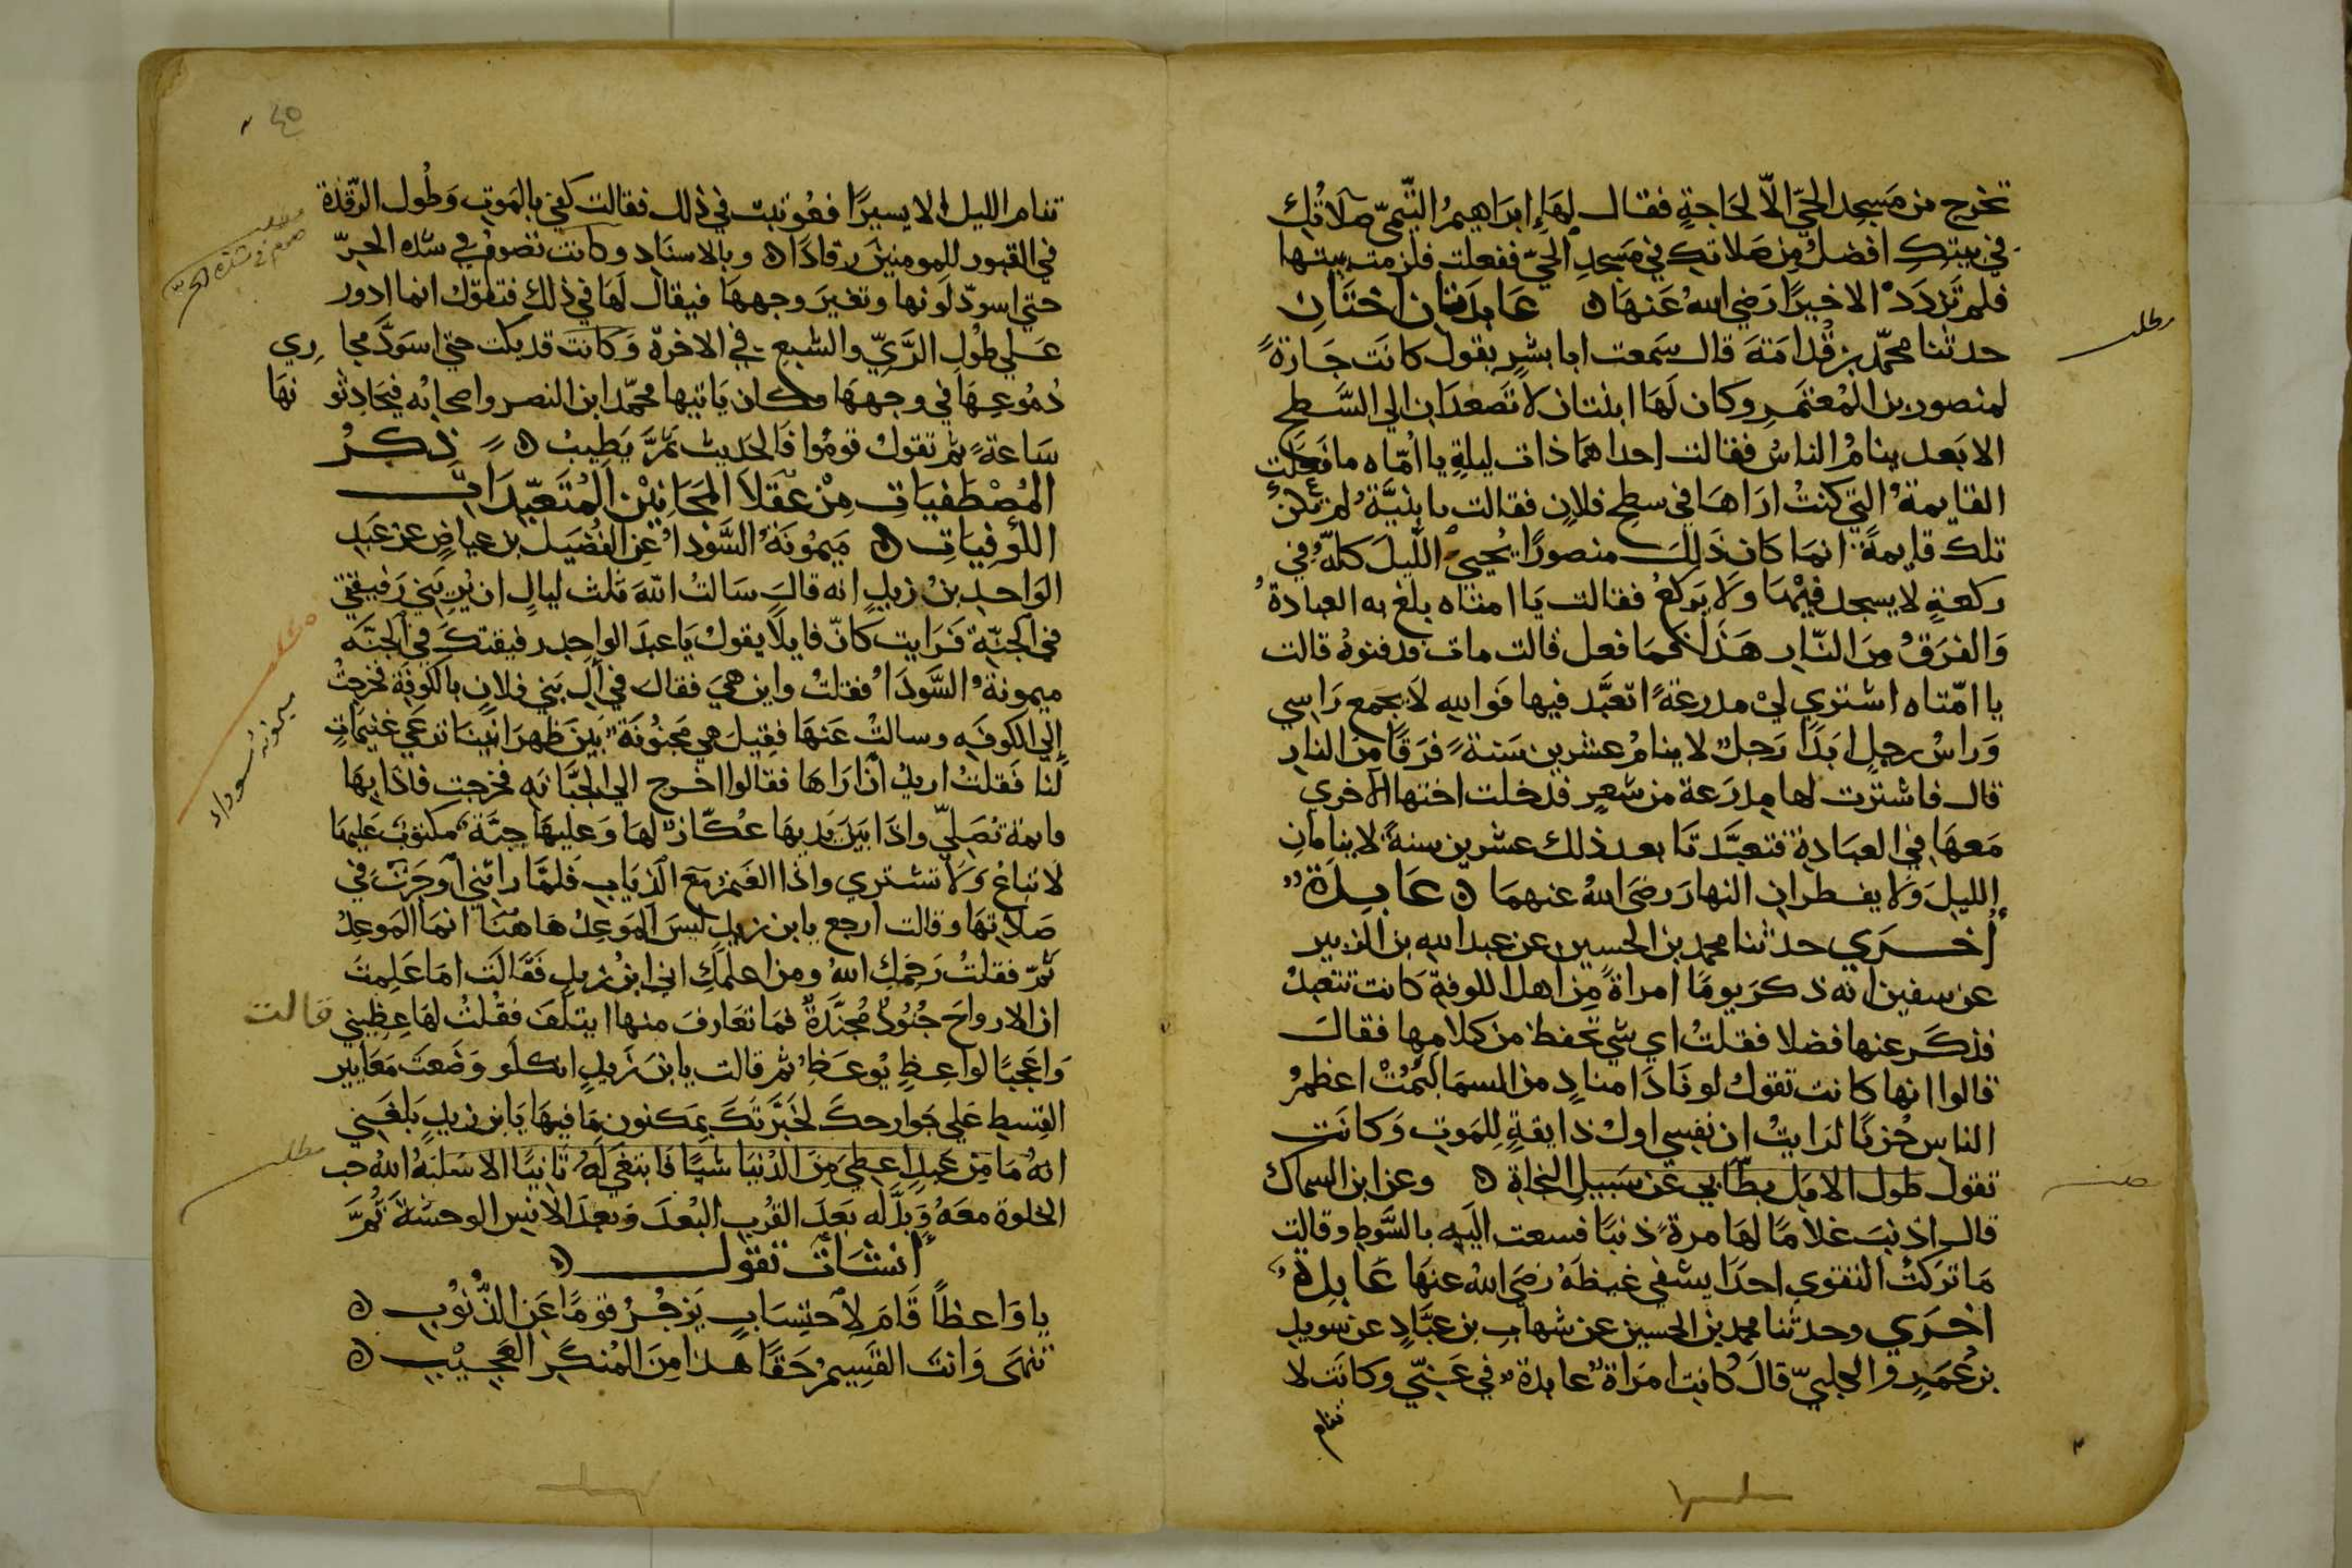 تخرج من مَسجِد الحيّ الّا لحَاجةٍ فقال لهَا إبرَاهيمُ التّيميّ صَلَاتُكِ
في بيتكِ افضلُ مِن صَلاتكِ في مَسجدِ الحيّ ففعلت فلزمت بيتها
فلم تَزدَدْ الاخيرًا رَضي اللهُ عَنهَا ه عَابدَتان اختَانِ
حدثنا محمّد بن قُدامَةَ قال سَمعت ابا بشرٍ يقول كانَت جَارَةً
لمنصور بن المُعتَمرِ وكان لَهَا ابنتان لا تَصعَدَان الي السَّطحِ
الا بَعد ينامُ الناسُ فقالت احداهمَا ذات ليلةٍ يا امّاه ما فَعَلَت
القايمةُ التي كنتُ ارَاهَا في سطحِ فلانٍ فقالت يا بنيَّةُ لم تكن
تلك قايمةً انمَا كان ذَلِكَ منصورًا يُحيي اللّيلَ كلّهُ في
ركعةٍ لا يسجد فيْهَا وَلَا يَركعُ فقالت يَا امتاه بلغ به العبادةُ
وَالفرَقُ مِنَ النّارِ هَذَا كمَا فعل قالت مات ودفنوهُ قالت
يا امّتاه اشتري ليْ مدرعةً اتعبَّد فيها فَواللهِ لَا يجمع رَاسي
وَراسُ رجلٍ ابَدًا رَجلٌ لا ينامُ عشرين سَنةً فرَقًا مِنَ النارِ
قال فاشترت لها مِدرَعة من شعرٍ فدخلت اختها الاخري
مَعهَا في العبَادةِ فتعبَّدتَا بعد ذلك عشرين سنةً لا ينامانِ
الليلَ وَلا يفطران النهارَ رضَي اللهُ عنهمَا ه عَابِدَةٌ
أُخرَي حدثنا محمد بن الحسين عن عبد اللهِ بن الزبير
عن سفين انه ذكرَ يومًا امراةً مِن اهل الكوفةِ كانت تتعبدُ
فذكَر عنها فضلا فقلتُ اي شي تحفظ من كلامِها فقالَ
قالوا انها كانت تقولُ لو نَادَا منادٍ من السمَا ليَمُتْ اعظمُ
الناس حُزنًا لرَايتُ ان نفسي اولُ ذايقةٍ لِلموتِ وَكانَت
تقول طول الامَلِ بطّا بي عن سَبيلِ النجاة ه وعن ابن السماك
قال اذنبَ غلامًا لهَا مرةً ذنبًا فسعت اليَهِ بالسَّوطِ وقالت
مَا تركتْ التقوي احدًا يشفي غيظَهُ رضَي اللهُ عنهَا عَابِدةٌ
اخرَي وحدثنا محمد بن الحسين عن شهابِ بن عبَّادٍ عن سويدِ
بن عُمَيرٍ و الجلبيّ قالَ كانت امرَاةٌ عابدةٌ في غَنيّ وكانَت لا
تنام
مطلب
٤٥
تنام الليل الا يسيرًا فعُوتبت في ذلك فقالت كفي بالمَوتِ وَطُول الرّقدة
في القبور للمومنينَ رقادًا ه وبالاسنَاد وكانت تصومُ في شدّه الحرّ
حتي اسودّ لونها وتغيرَ وجههَا فيقال لَهَا في ذلك فتقول انما ادور
عَلي طولِ الرَّيِّ والشبعِ في الاخرة وَكانَت قد بكت حتي اسوَدَّ مجاري
دُمُوعِهَا في وجههَا وكان يَاتيها محمّد ابن النصر واصحابُه فيُحَادِثونهَا
سَاعةً ثم تقولُ قومُوا فَالحَديث ثَمَّ يَطِيبُ ه ذِكرُ
المُصْطَفيَاتِ مِنْ عُقلَا المجَانِيْنِ المُتَعَبّدَات
الكوفيَاتِ ه مَيمُونَةُ السَّودَا عن الفُضَيل بن عياضٍ عن عَبدِ
الوَاحدِ بن زيدٍ انه قالَ سَالتُ اللّهَ ثلث ليالٍ ان يُرِيَني رَفيقتي
في الجَنّةِ فَرَايت كَانّ قايلًا يقولُ يَا عبدَ الواحدِ رفيقتكَ في الجنَّه
ميمونةُ السَّودَا فقلتُ واين هيَ فقالَ في آلِ بَني فلانٍ بالكوفَة فخرجتُ
إلي الكوفَه وسالتُ عَنهَا فقيلَ هي مَجنُونَةٌ بَين ظهرَانينَا تَرعَي غنيمَاتٍ
لنا فَقلتُ اريدُ ان ارَاها فقالوا اخرج الي الجبَّانَهِ فخرجت فاذا بهَا
قايمة تُصَلِيّ واذَا بَينَ يَديهَا عُكّازٌ لهَا وَعليهَا جبَّةٌ مكتوبٌ عَليهَا
لا تباعُ وَلا تشتري واذا الغَنمُ مَع الذيَابِ فَلمَّا راتني اوجَزَت في
صَلَاتِهَا وقالت ارجع يا بن زيدٍ ليسَ المَوعِدُ هَاهنَا انمَا المَوعِدُ
ثَمّ فقلتُ رَحِمَكِ اللهُ ومن اعلمَكِ اني ابنُ زيدٍ فَقَالَت امَا عَلِمتَ
ان الارواحَ جُنُودٌ مُجنَّدَةٌ فمَا تعَارفَ منها ايتلَفَ فقُلتُ لهَا عِظِيني قالت
وَاعَجبًا لواعظٍ يُوعَظُ ثم قالت يا بن زَيدٍ انكَ لَو وَضَعتَ مَعَايير
القِسطِ عَلي جَوارحكَ لخَبَّرَتكَ بمَكنون مَا فيهَا يَا بن زيدٍ بَلغَني
انهُ مَا مِن عَبدٍ اعطِيَ مِنَ الدُنيَا شيًا فَابتغَي لَهُ ثانيًا الا سَلبَهُ اللهُ حب
الخلوة معَهُ وَبدَّلَه بَعدَ القُربِ البُعدَ وَبعدَ الانسِ الوحشةَ ثُمَّ
انشَات تقول ه
يا وَاعظاً قَامَ لِاحتِسَابٍ يَزجُرُ قومًا عَن الذّنُوْبِ ه
تنهَي وَانتَ السَّقِيمُ حَقًا هذا مِنَ المُنكَرِ العَجِيْبِ ه
مطلب
صوم في شدة الحرّ
مطلب
ميمونه سوداء
مطلب